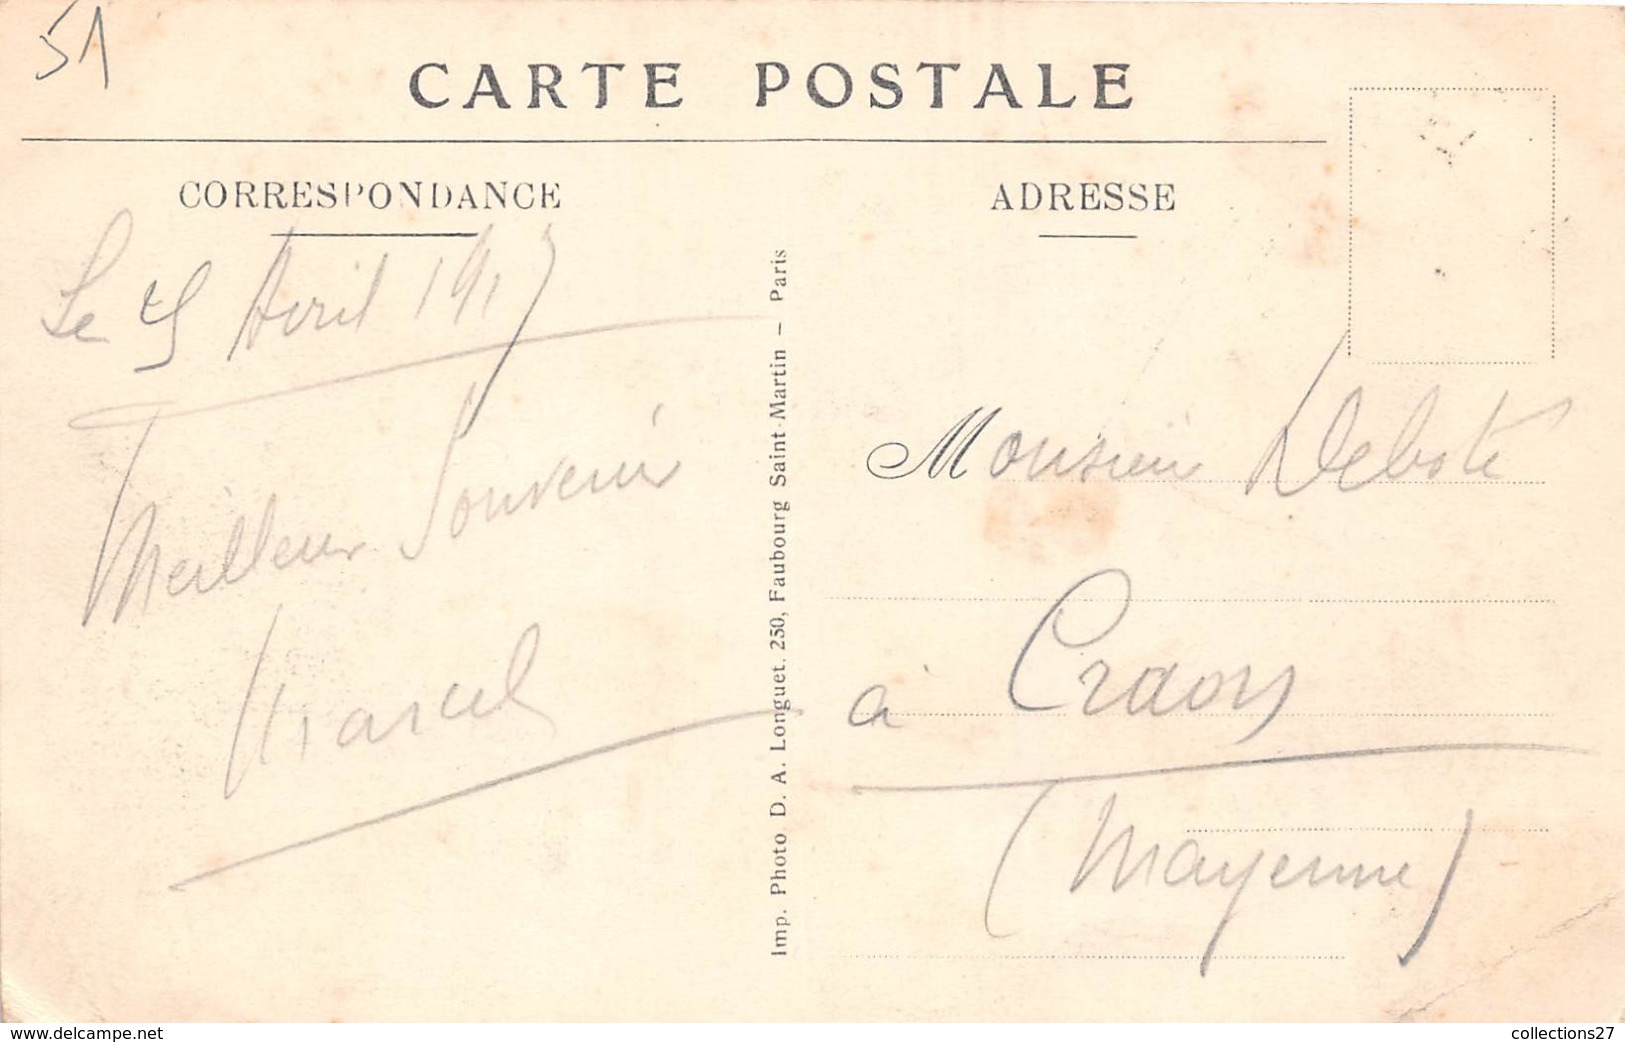 51
CARTE POSTALE
CORRESPONDANCE
Le Avril
Meilleur Souvenir
Marcel
Imp. Photo D. A. Longuet, 250, Faubourg Saint-Martin – Paris
ADRESSE
Monsieur
à Craon
(Mayenne)
www.delcampe.net
collections27